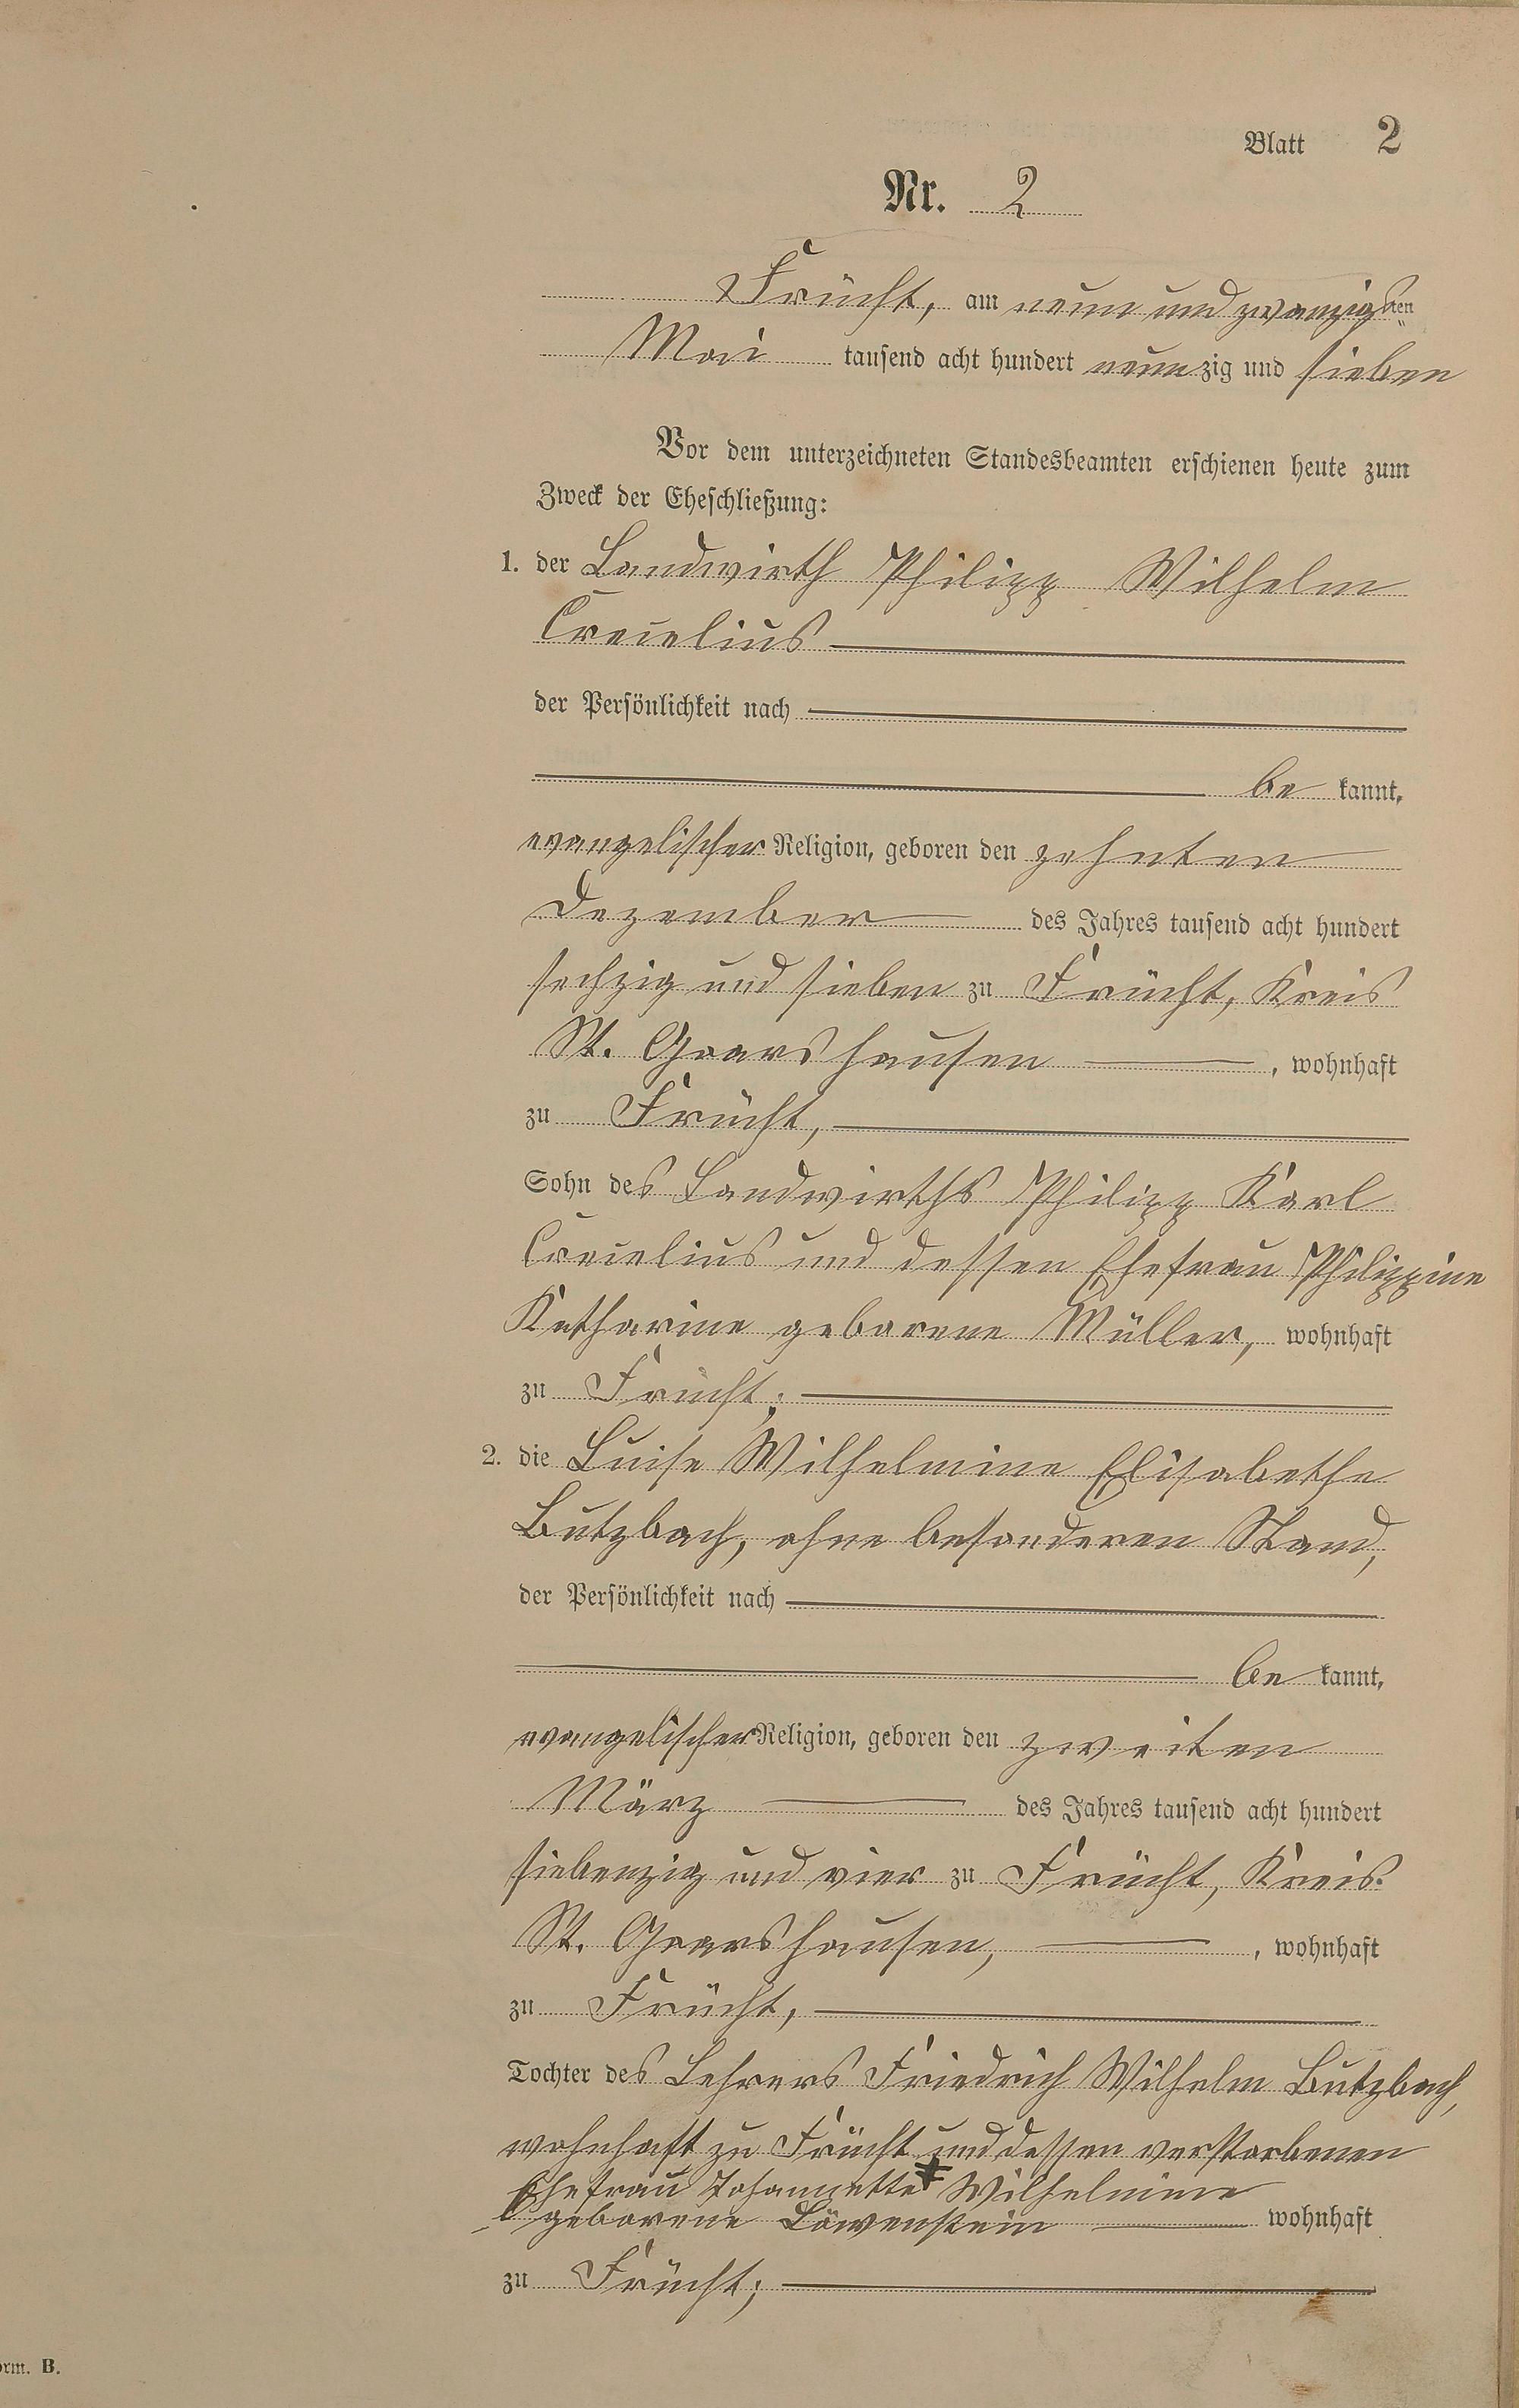 Blatt 2
Nr. 2
Frücht, am neun und zwanzigsten
Mai tausend acht hundert neunzig und sieben
Vor dem unterzeichneten Standesbeamten erschienen heute zum
Zweck der Eheschließung:
1. der Landwirth Philipp Wilhelm
Crecelius
der Persönlichkeit nach
be kannt,
evangelischer Religion, geboren den zehnten
Dezember des Jahres tausend acht hundert
sechzig und sieben zu Frücht, Kreis
St. Goarshausen, wohnhaft
zu Frücht,
Sohn des Landwirths Philipp Karl
Crecelius und dessen Ehefrau Philippine
Katharine geborene Müller, wohnhaft
zu Frücht;
2. die Luise Wilhelmine Elisabethe
Butzbach, ohne besonderen Stand,
der Persönlichkeit nach
be kannt,
evangelischer Religion, geboren den zweiten
März des Jahres tausend acht hundert
siebenzig und vier zu Frücht, Kreis
St. Goarshausen, , wohnhaft
zu Frücht,
Tochter des Lehrers Friedrich Wilhelm Butzbach,
wohnhaft zu Frücht und dessen verstorbenen
Ehefrau Johannette Wilhelmine
geborene Löwenstein wohnhaft
zu Frücht;
orm. B.